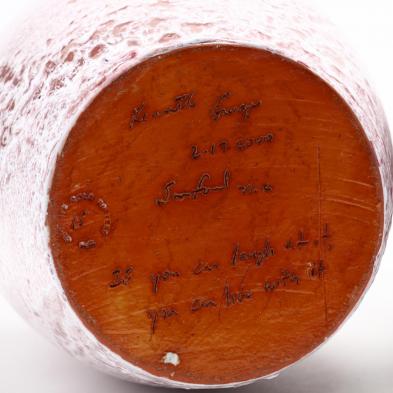 Kenneth George
2-17-2000
Sanford N.C.
If you can laugh at it,
you can live with it